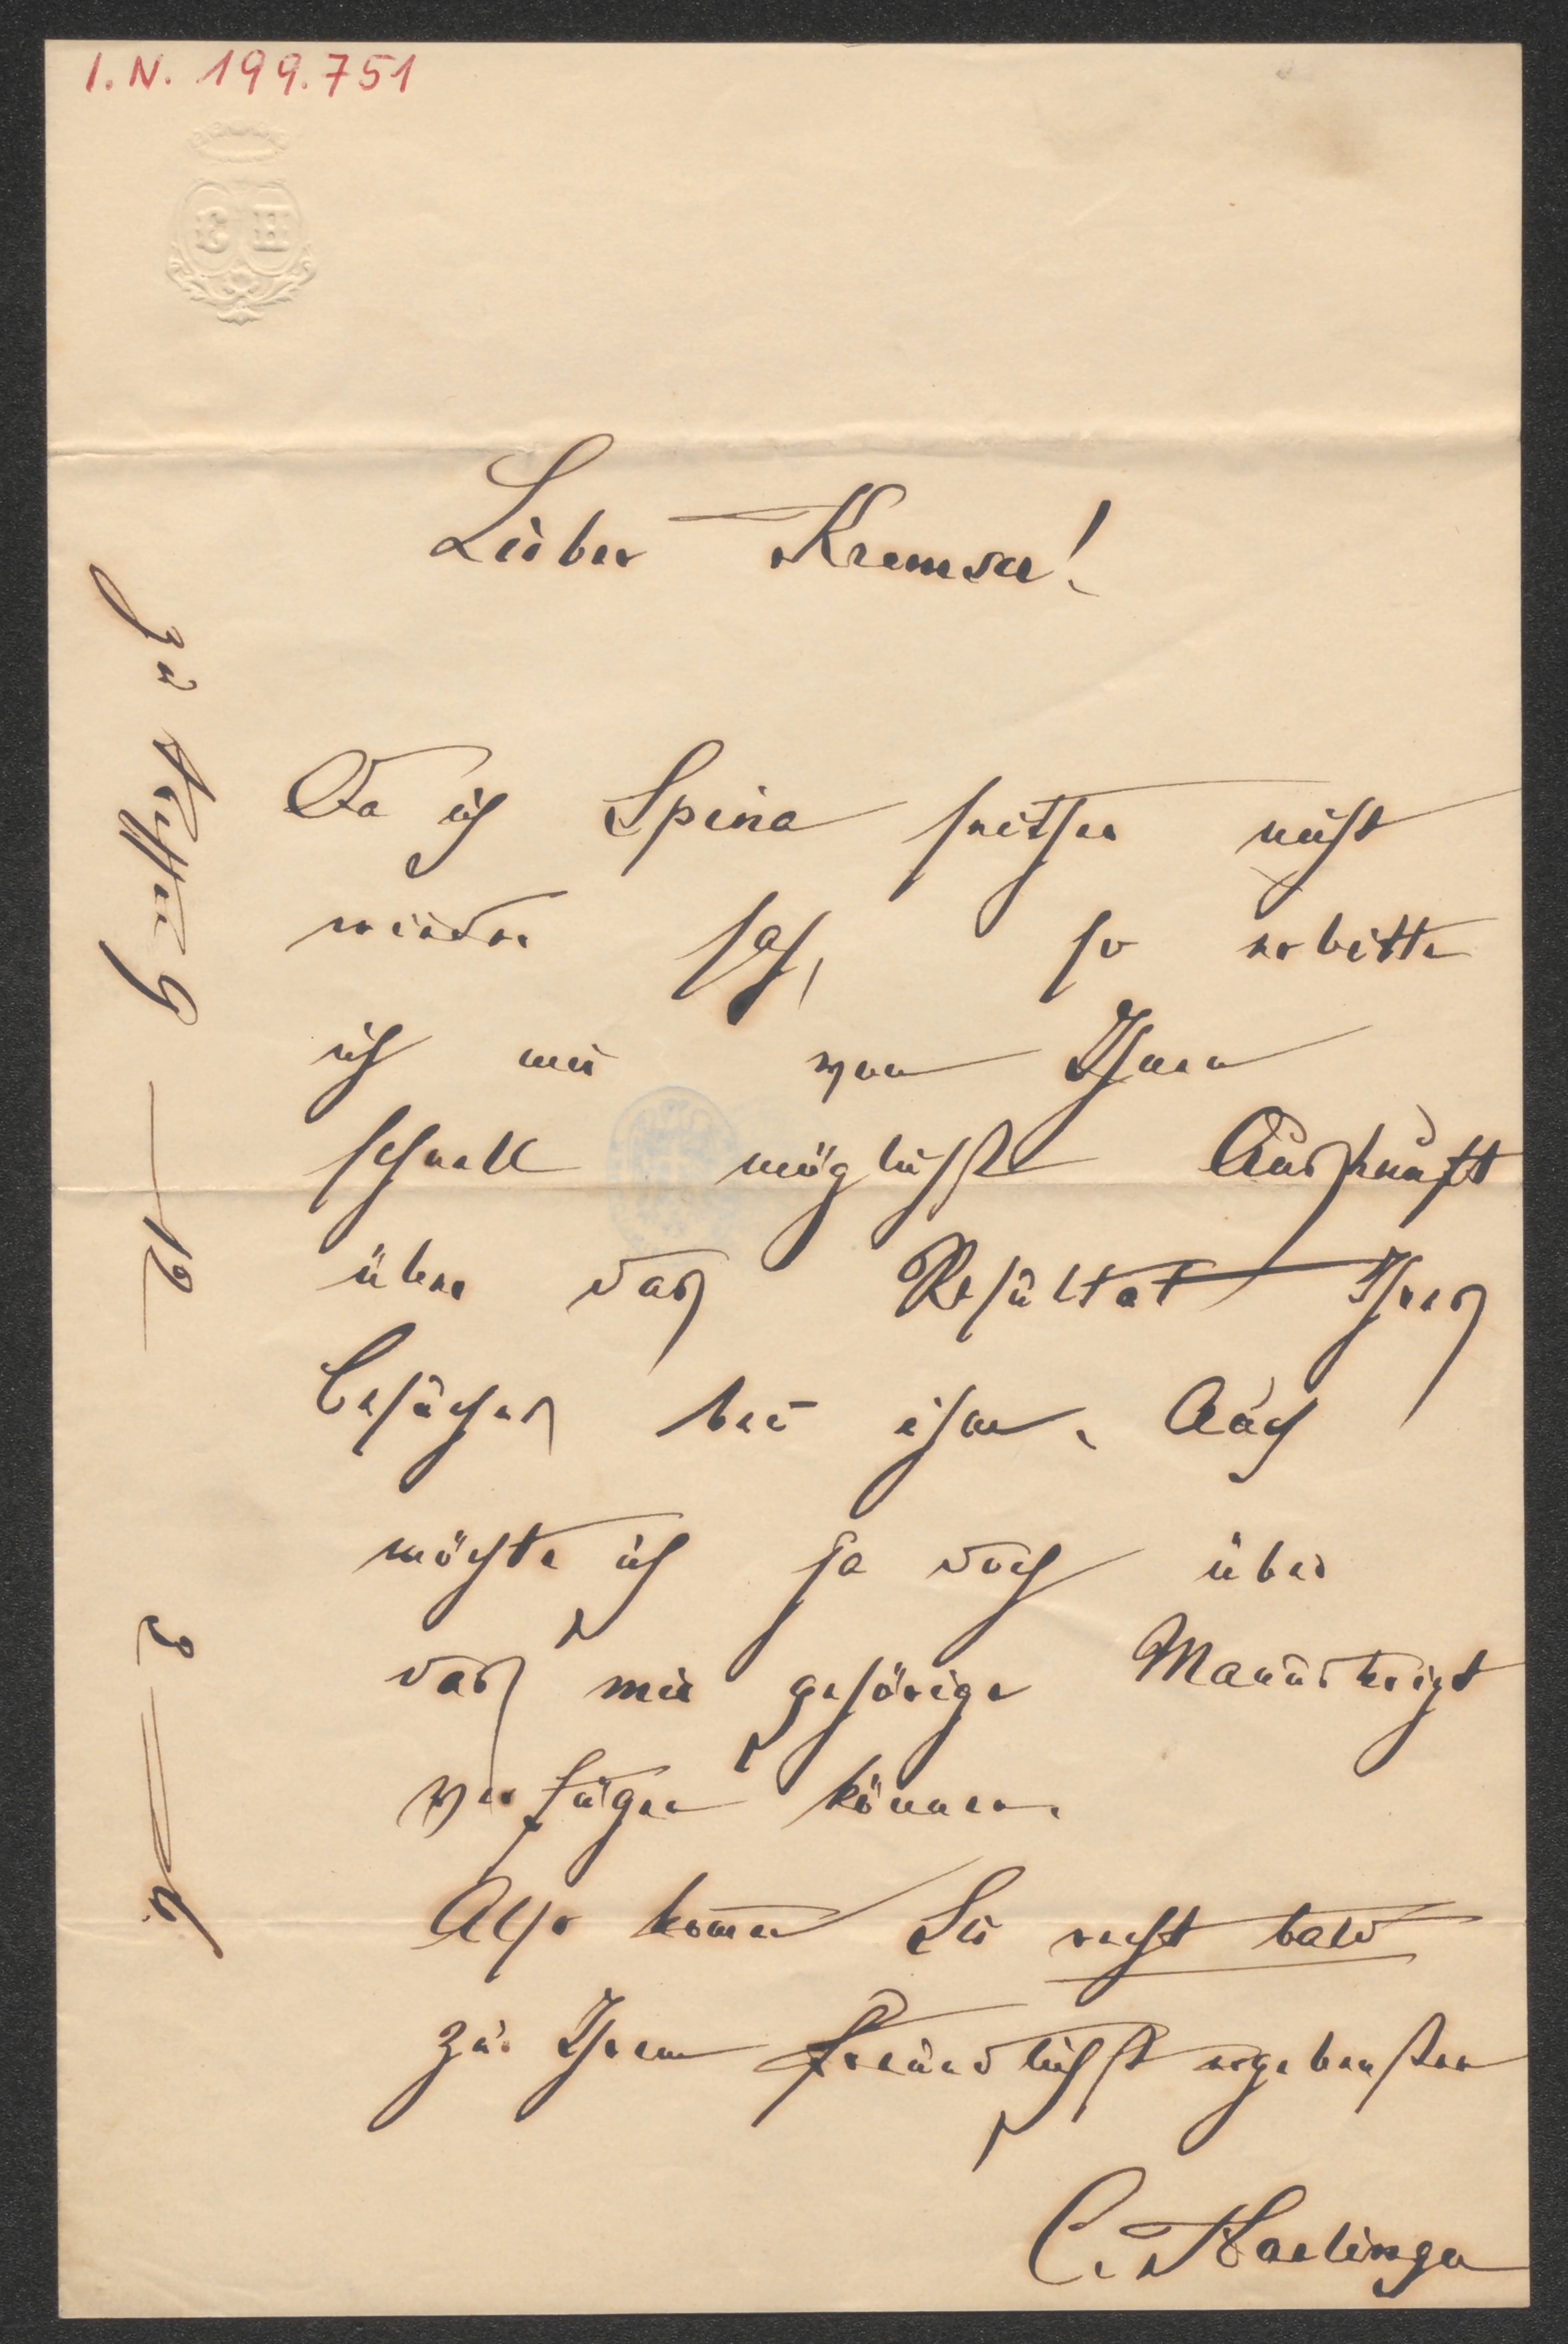 I. N. 199.751
C H
Lieber Kremser!
Da ich Spina seither nicht
wieder sah, so erbitte
ich mir von Ihnen
schnell möglichst Auskunft
über das Resultat Ihres
Besuches bei ihm. Auch
möchte ich ja doch über
das mir gehörige Manuskript
verfügen können.
Also komen Sie recht bald
zu Ihrem freundlichst ergebensten
C. Haslinger
zu treffen 9 — 12
3 — 6